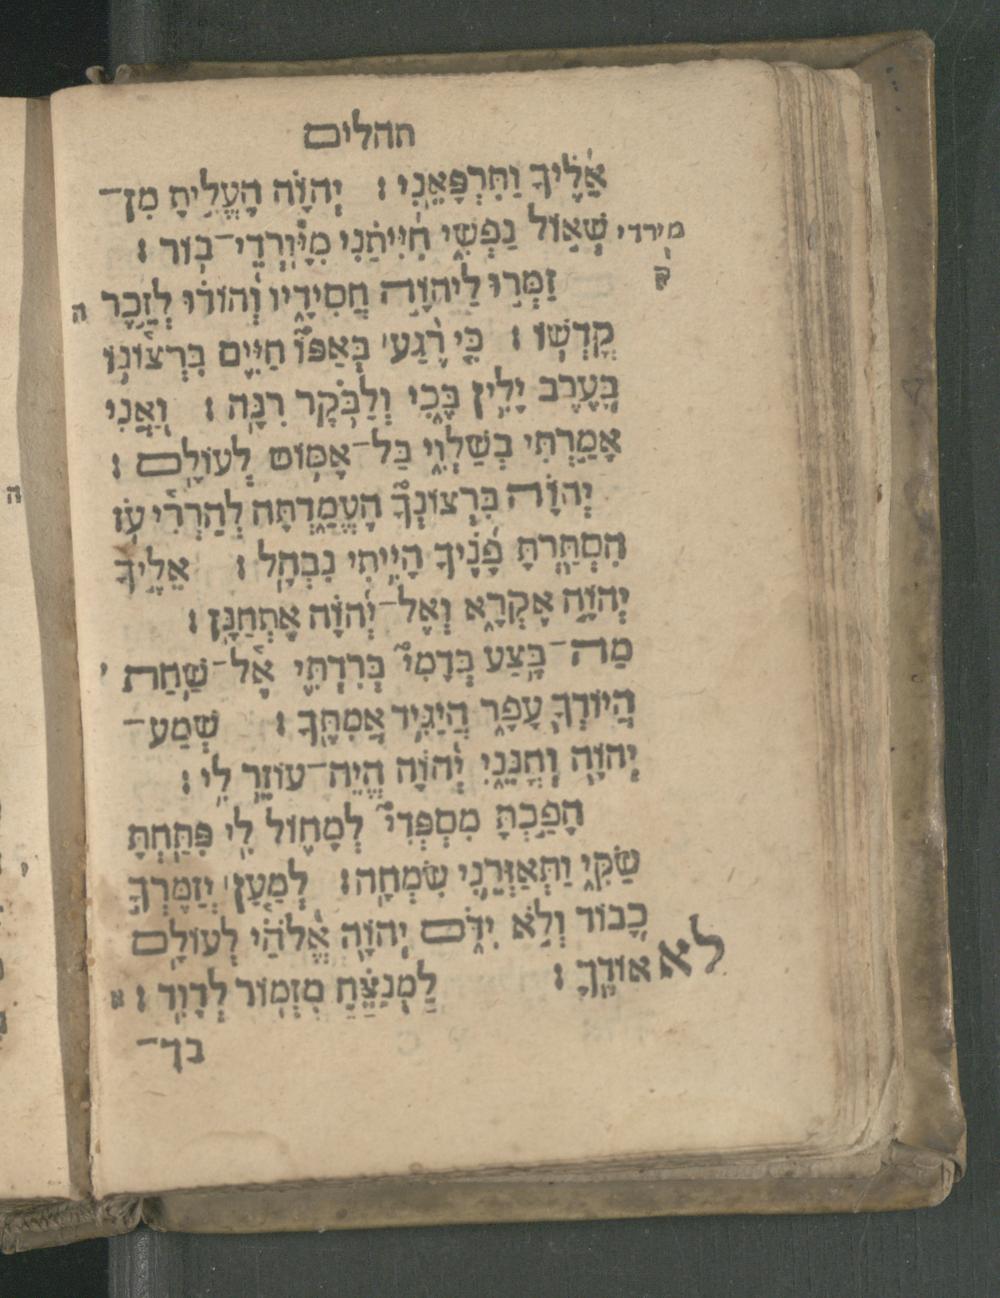 תהלים
אֵ֝לֶ֗יךָ וַתִּרְפָּאֵֽנִי ׃ יְֽהוָ֗ה הֶֽעֱלִ֣יתָ מִן־
שְׁא֣וֹל נַפְשִׁ֑י חִ֝יִּיתַ֗נִי מִיּוֹרְדֵי־בֽוֹר ׃ מירדי ק
זַמְּר֣וּ לַיהוָ֣ה חֲסִידָ֑יו וְ֝הוֹד֗וּ לְזֵ֣כֶר ה
קָדְשֽׁוֹ ׃ כִּ֤י רֶ֨גַע בְּאַפּוֹ֮ חַיִּ֪ים בִּרְצ֫וֹנ֥וֹ
בָּ֭עֶרֶב יָלִ֥ין בֶּ֗כִי וְלַבֹּ֥קֶר רִנָּֽה ׃ וַ֭אֲנִי
אָמַ֣רְתִּי בְשַׁלְוִ֑י בַּל־אֶמּ֥וֹט לְעוֹלָֽם ׃
יְֽהוָ֗ה בִּרְצוֹנְךָ֮ הֶעֱמַ֪דְתָּה לְֽהַרְרִ֫י עֹ֥ז
הִסְתַּ֥רְתָּ פָנֶ֗יךָ הָיִ֥יתִי נִבְהָֽל ׃ אֵלֶ֣יךָ
יְהוָ֣ה אֶקְרָ֑א וְאֶל־יְ֝הוָ֗ה אֶתְחַנָּֽן ׃
מַה־בֶּ֥צַע בְּדָמִי֮ בְּרִדְתִּ֪י אֶ֫ל־שָׁ֥חַת י
הֲיוֹדְךָ֥ עָפָ֑ר הֲיַגִּ֥יד אֲמִתֶּֽךָ ׃ שְׁמַע־
יְהוָ֥ה וְחָנֵּ֑נִי יְ֝הוָ֗ה הֱ‍ֽיֵה־עוֹזֵ֥ר לִֽי ׃
הָפַ֣כְתָּ מִסְפְּדִי֮ לְמָח֪וֹל לִ֥י פִּתַּ֥חְתָּ
שַׂקִּ֑י וַֽתְּאַזְּרֵ֥נִי שִׂמְחָֽה ׃ לְמַ֤עַן יְזַמֶּרְךָ֣
כָ֭בוֹד וְלֹ֣א יִדֹּ֑ם יְהוָ֥ה אֱ֝לֹהַ֗י לְעוֹלָ֥ם
לא אוֹדֶֽךָּ ׃ לַמְנַצֵּ֗חַ מִזְמ֥וֹר לְדָוִֽד ׃ א
בך־
ה